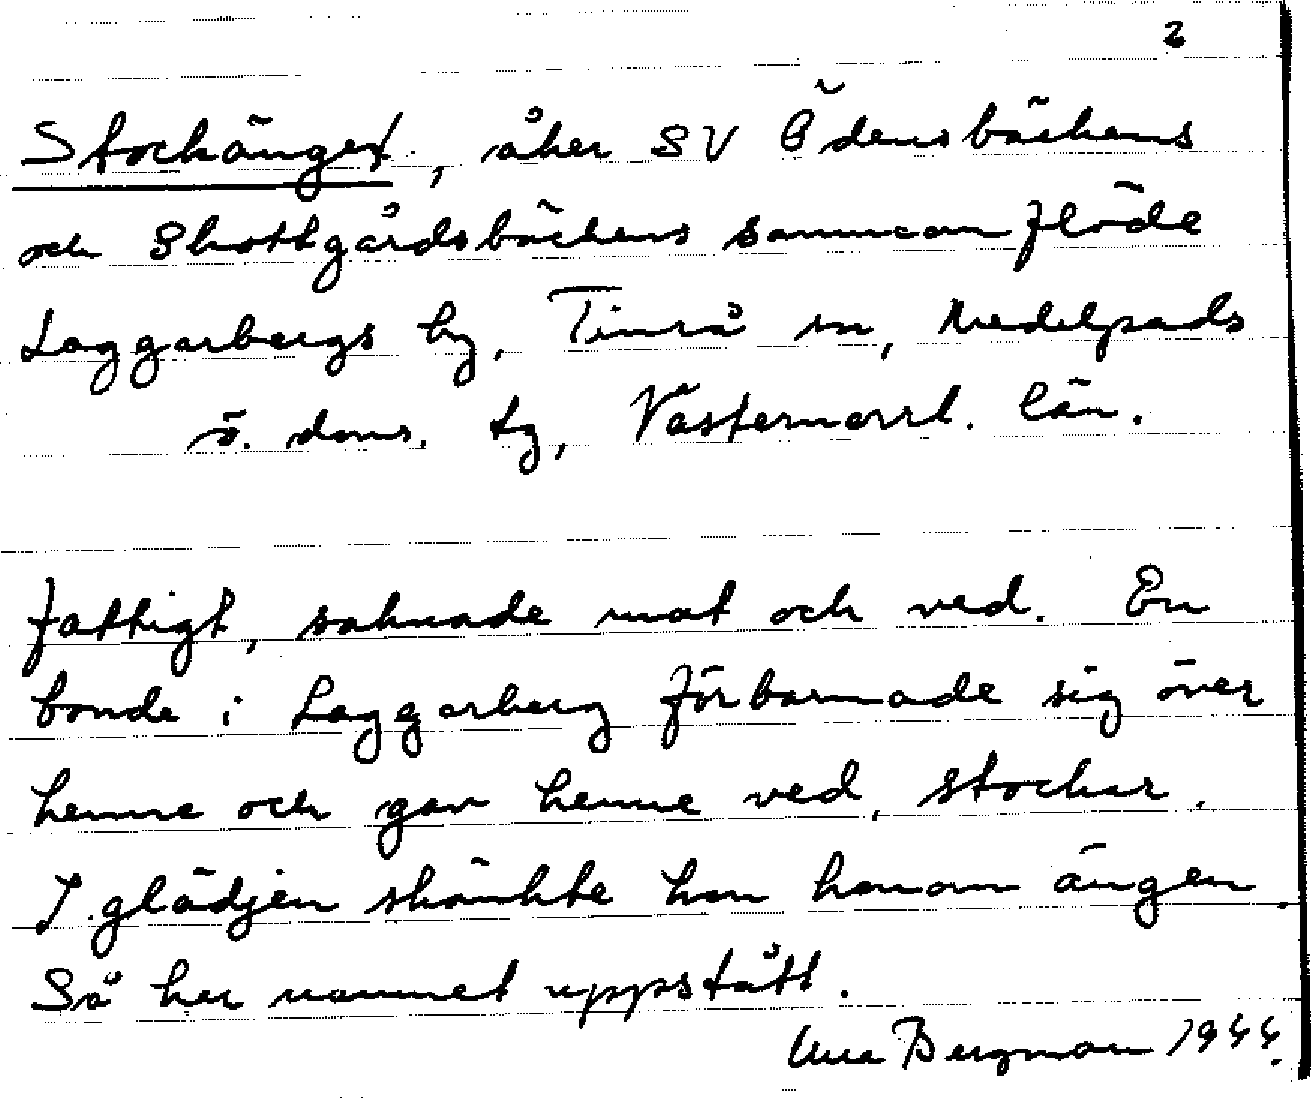 2
Stockänget, åker SV Ödensbäckens
och Skottgårdsbäckens sammanflöde
Laggarbergs by, Timrå sn, Medelpads
ö. doms. tg, Västernorrl. län.
fattigt, saknade mat och ved. En
bonde i Laggarberg förbarmade sig över
henne och gav henne ved, stockar.
I glädjen skänkte hon honom ängen.
Så har namnet uppstått.
Bergman 1944.